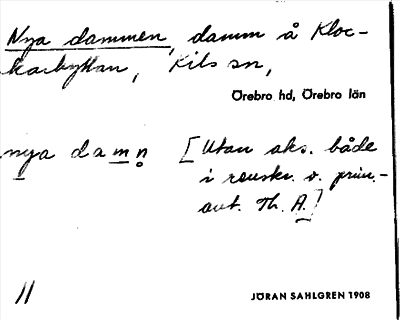 Nya dammen, damm å Kloc-
karhyttan, Kils sn,
Örebro hd, Örebro län
nya damn [Utan aks. både
i renskr. o. prim.-
ant. Th. A.]
11
JÖRAN SAHLGREN 1908